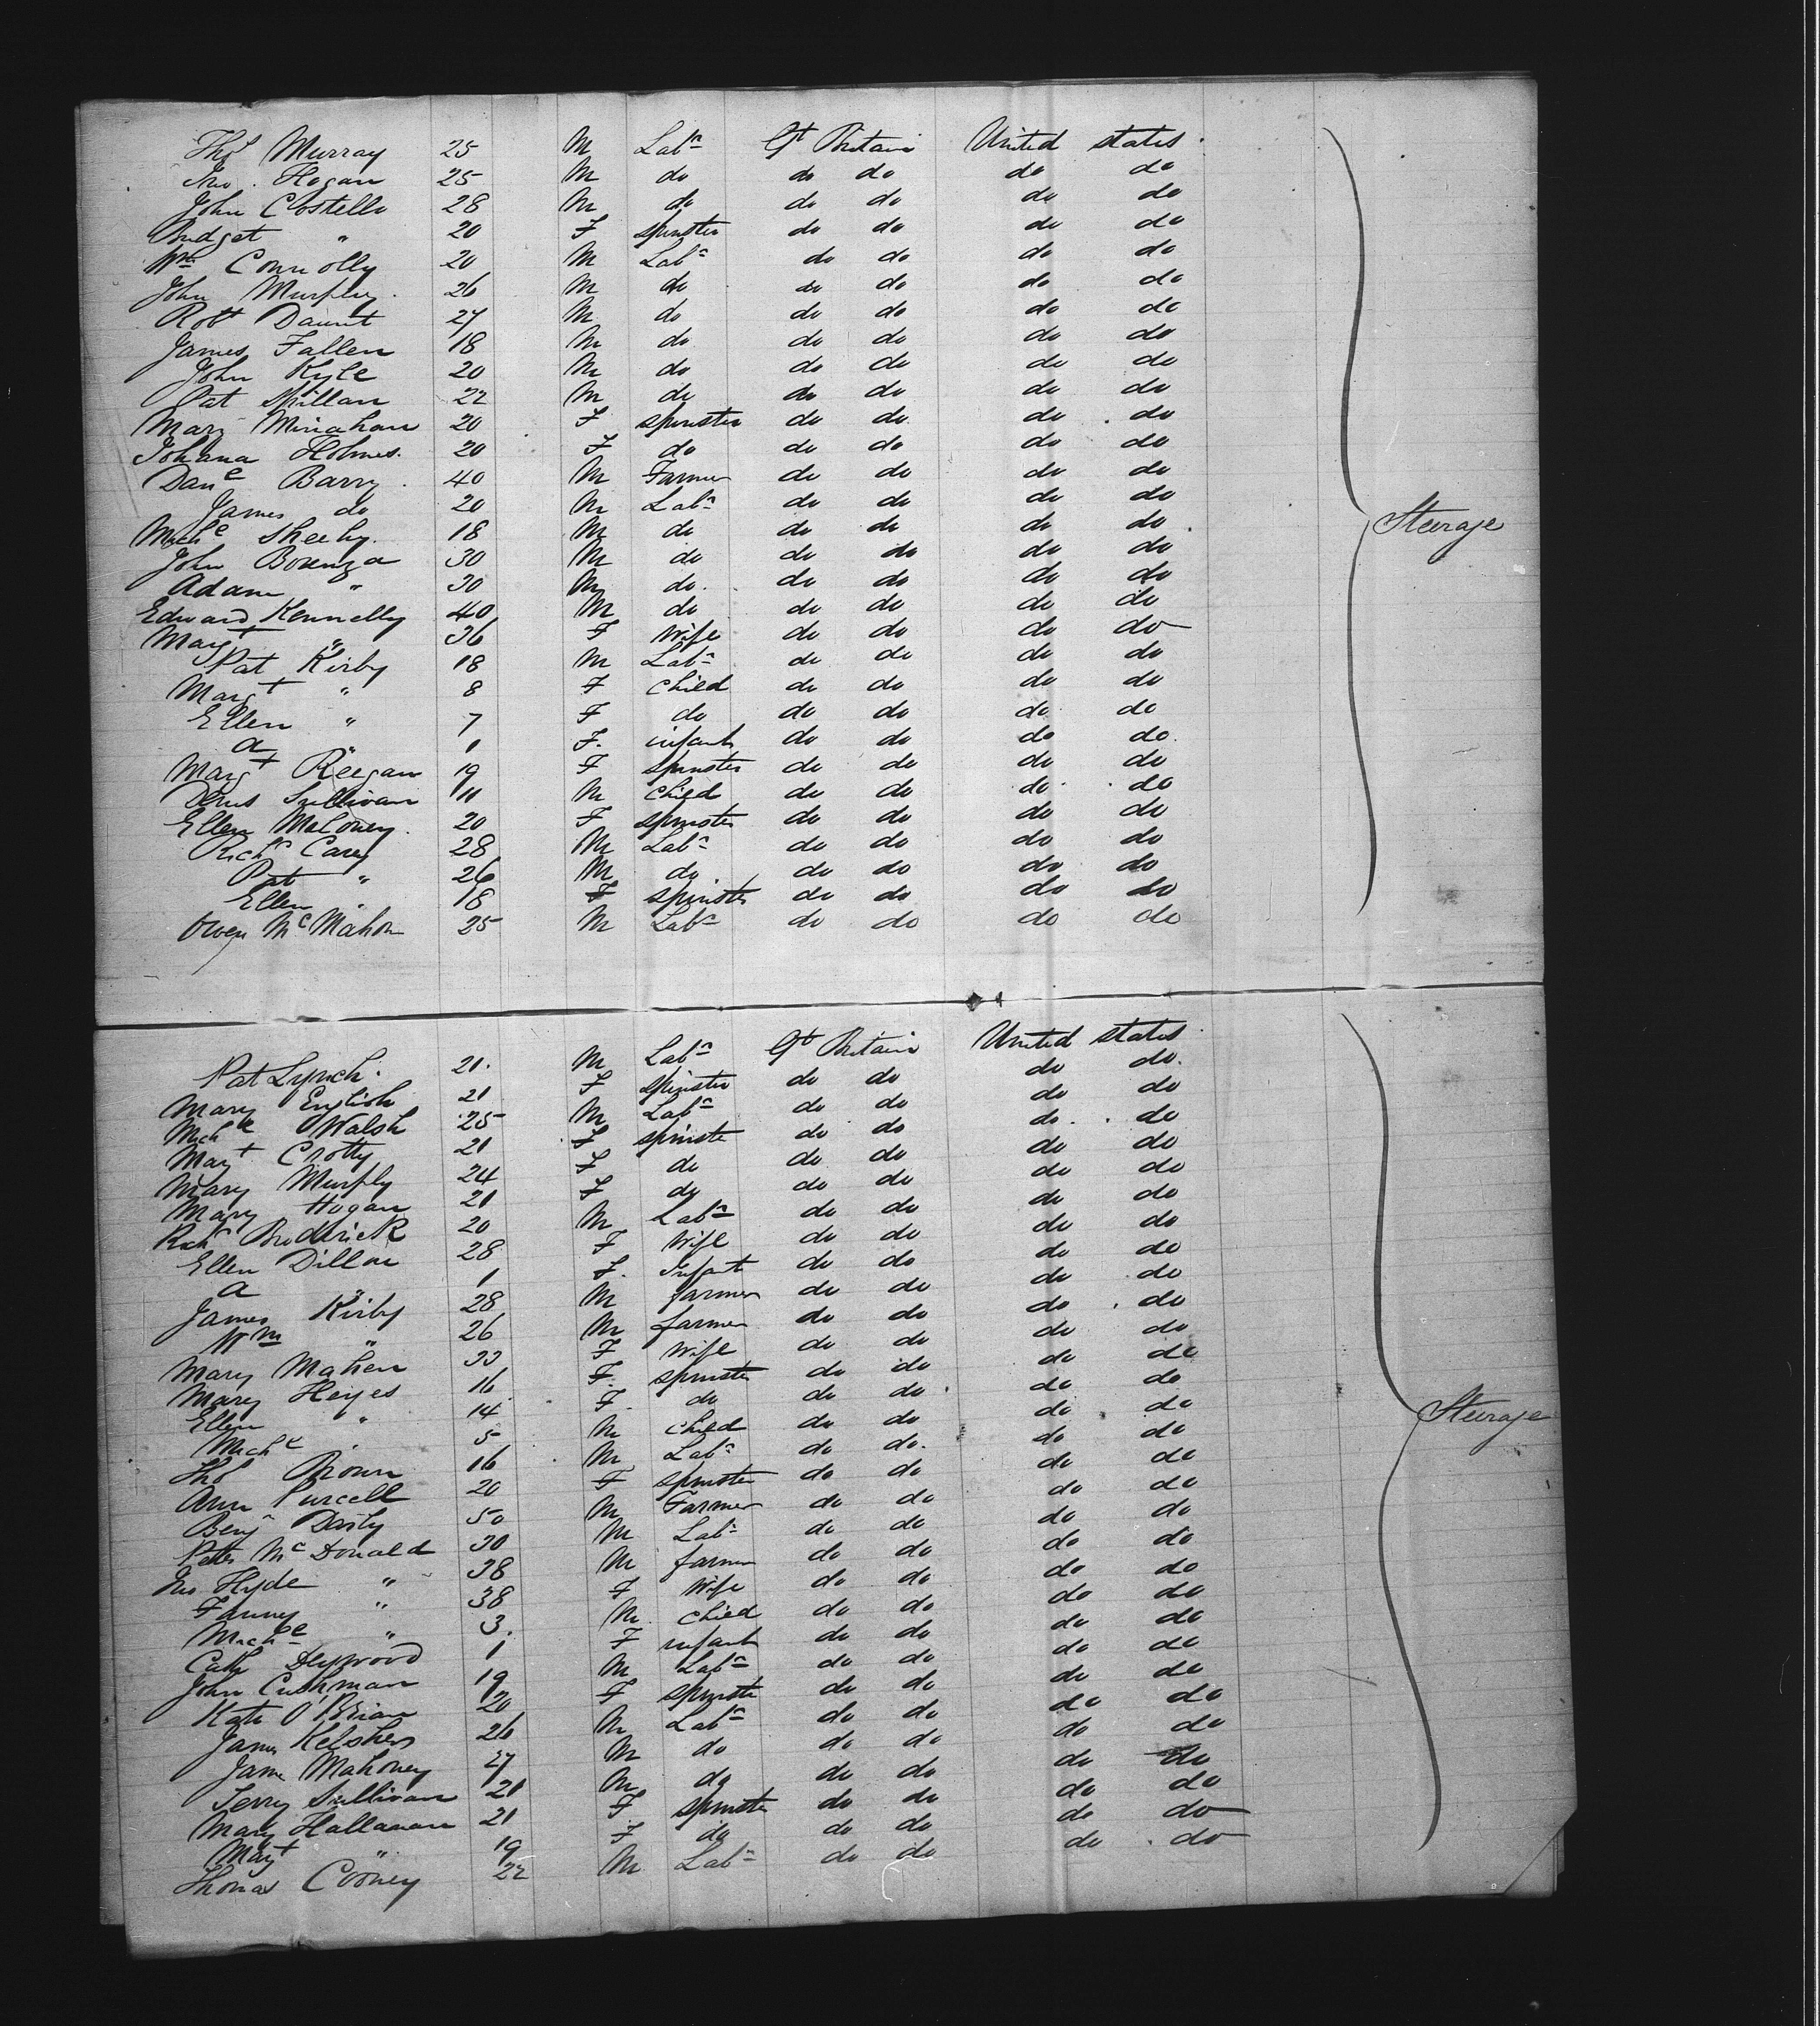 Thos Murray 25 M Labr Gt Britain United states
Jno. Hogan 25 M do do do do do
John Costello 28 M do do do do do
Bridget " 20 F spinster do do do do
Wm Connolly 20 M Labr do do do do
John Murphy 26 M do do do do do
Robt Daunt 27 M do do do do do
James Fallen 18 M do do do do do
John Kyle 20 M do do do do do
Pat Spillan 22 M do do do do do
Mary Minahan 20 F spinster do do do do
Johana Holmes 20 F do do do do do
Danl Barry 40 M Farmer do do do do
James do 20 M Labr do do do do
Michl Sheehy 18 M do do do do do
Steerage
John Bovenza 30 M do do do do do
Adam " 30 M do do do do do
Edward Kennelly 40 M do do do do do
Margt " 36 F Wife do do do do
Pat Kirby 18 M Labr do do do do
Margt " 8 F child do do do do
Ellen " 7 F do do do do do
a " 1 F. infant do do do do
Margt Reegan 19 F spinster do do do do
Denis Sullivan 11 M child do do do do
Ellen Maloney 20 F spinster do do do do
Richd Carey 28 M Labr do do do do
Pat " 26 M do do do do do
Ellen " 18 F spinster do do do do
Owen McMahon 25 M Labr do do do do
Pat Lynch 21 M Labr Gt Britain United states
Mary English 21 F spinster do do do do
Michl Walsh 25 M Labr do do do do
Margt Crotty 21 F spinster do do do do
Mary Murphy 24 F do do do do do
Mary Hogan 21 F do do do do do
Richd Broderick 20 M Labr do do do do
Ellen Dillon 28 F Wife do do do do
a " 1 F. Infant do do do do
James Kirby 28 M farmer do do do do
Wm " 26 M farmer do do do do
Mary Mahen 33 F Wife do do do do
Mary Heyes 16 F. spinster do do do do
Ellen " 14 F do do do do do
Michl " 5 M child do do do do
Steerage
Thos Brown 16 M Labr do do do do
Ann Purcell 20 F spinster do do do do
Benj 50 M Farmer do do do do
Peter McDonald 30 M Labr do do do do
Jno Hyde " 38 M farmer do do do do
Fanny " 38 F Wife do do do do
Michl " 3 M child do do do do
Cath 1 F infant do do do do
John Cushman 19 M Labr do do do do
Kate O'Brian 20 F spinster do do do do
James Kelsher 26 M Labr do do do do
Jame Mahoney 27 M do do do do do
Jerry Sullivan 21 M do do do do do
Mary Hallanan 21 F spinster do do do do
Margt " 19 F do do do do do
Thomas Cooney 22 M Labr do do do do